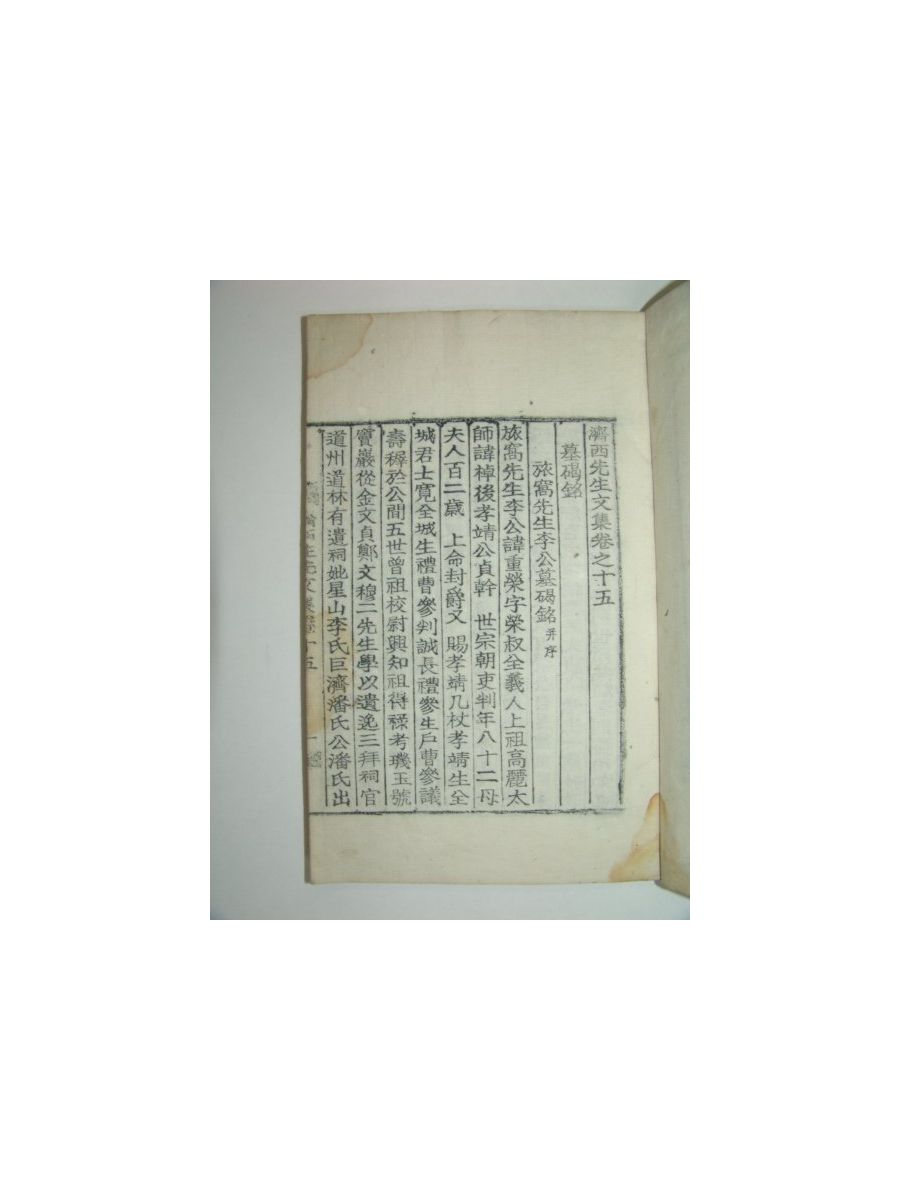 濟西先生文集卷之十五
墓碣銘
旅窩先生李公墓碣銘 并序
旅窩先生李公諱重榮字榮叔全義人上祖高麗太
師諱棹後孝靖公貞幹 世宗朝吏判年八十二母
夫人百二歲 上命封爵又 賜孝靖几杖孝靖生全
城君士寬全城生禮曹參判誠長禮參生戶曹參議
壽稺於公間五世曾祖校尉興知祖得祿考璣玉號
寶巖從金文貞鄭文穆二先生學以遺逸三拜祠官
道州道林有遺祠妣星山李氏巨濟潘氏公潘氏出
先生文集卷十五 一